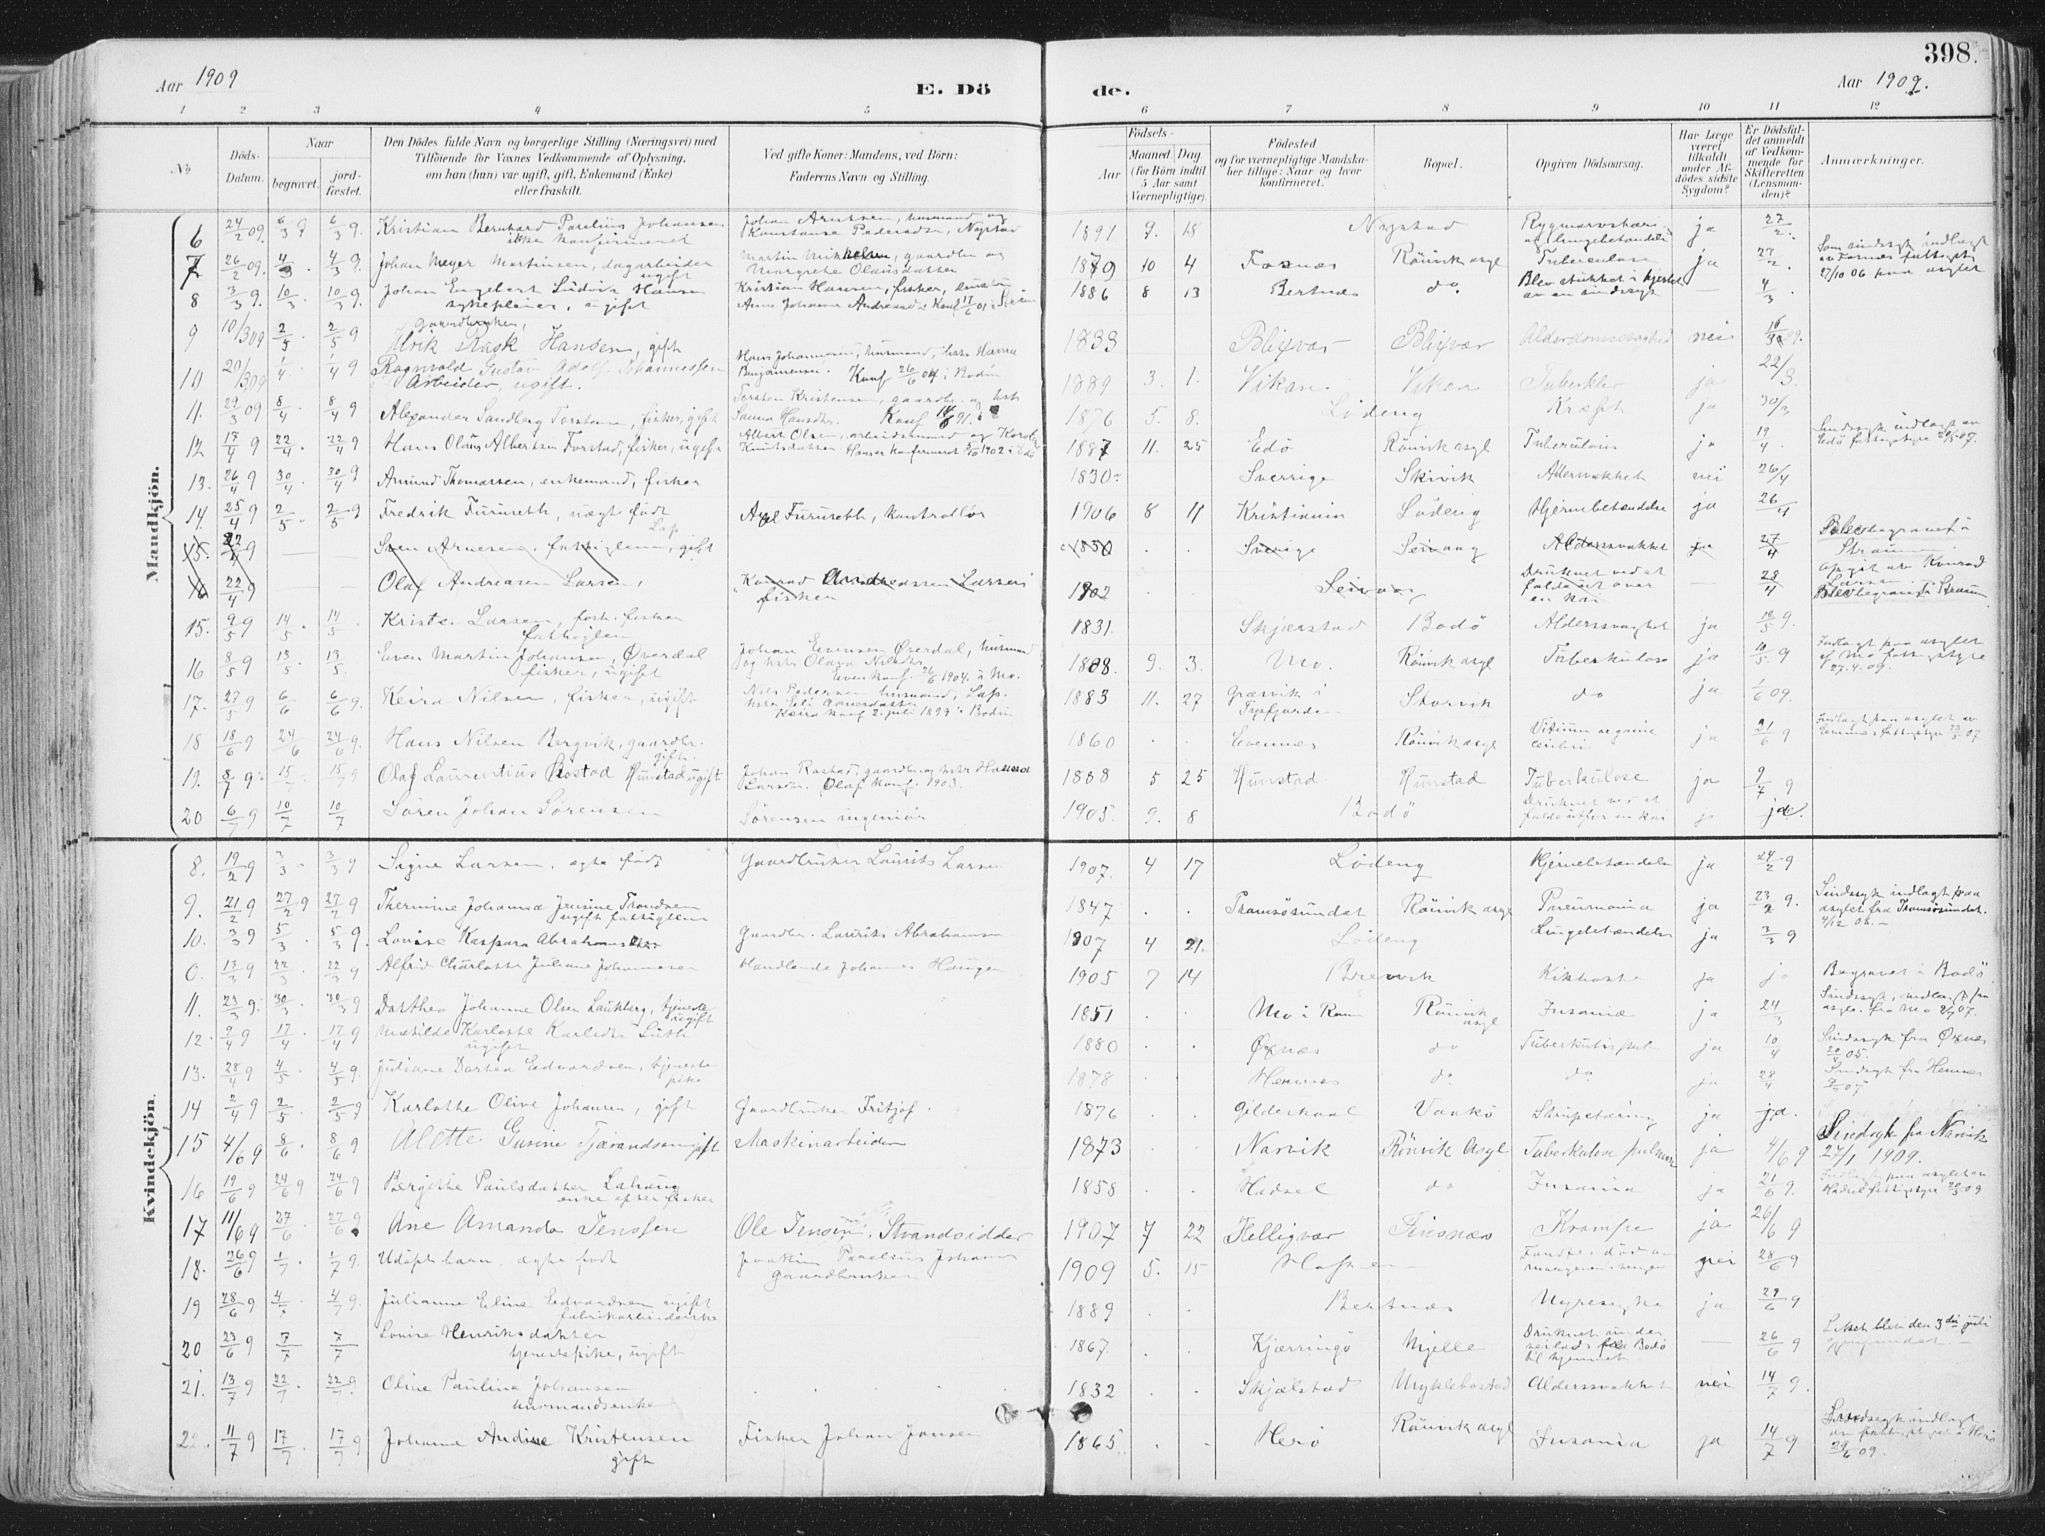 398.
Aar 1909
E. Dö
de.
Aar 1909.
1 2 3 4 5 6 7 8 9 10 11 12
No
Döds-Datum.
Naar
begravet.
jord-fæstet.
Den Dödes fulde Navn og borgerlige Stilling (Næringsvei) med
Tilföiende for Voxnes Vedkommende af Oplysning,
om han (hun) var ugift, gift, Enkemand (Enke)
eller fraskilt.
Ved gifte Koner: Mandens, ved Börn:
Faderens Navn og Stilling.
Födsels-
Aar
Maaned Dag
(for Börn indtil
5 Aar samt
Værnepligtige).
Födested
og for værnepligtige Mandska-
ber tillige: Naar og hvor
konfirmeret.
Bopæl.
Opgiven Dödsaarsag.
Har Læge
været
tilkaldt
under Af-
dödes sidste
Sygdom?
Er Dödsfal-
det anmeldt
af Vedkom-
mende for
Skifteretten
(Lensman-
den)?
Anmærkninger.
Mandkjön.
6 24/2 09. 6/3 9 6/3 9. Kristian Bernhard Parelius Johansen
ikke konfirmeret
Johan Arntsen, husmand og
Konstanse Pedersdtr, Nystad
1891 9. 18 Nystad ja 27/2.
7 26/2 09. 4/3. 4/3 9. Johan Meyer Martinsen, dagarbeider
ugift
Martin Mikkelsen, gaardbr. og
Margrethe Olausdatter
1879 10 4 Fosnæs Rönvik asyl Tuberkulose ja 27/2.
Som sindssyk indlagt
av Fosnes fattigst.
27/10 06 paa asylet
8 3/3 9. 10/3. 10/3 9. Johan Engebert Ludvik Hansen
sykepleier, ugift
Kristian Hansen, fisker,
1886 8 13 Bertnæs do. Blev stukket i hjertet
av en sindssyk — 4/3.
9 10/3 09 2/5. 2/5 9 gaardbruker,
Ulrik Rask Hansen, gift
1833 Bligvær Bligvær Alderdomssvakhed nei
10 20/3 09 1/4. 1/4 9 Ragnvald Gustav Adolf Johannessen
Arbeider, ugift.
Hans Johannessen, husmand, hstr. Hanna
Benjaminsen. Konf 26/6 04 i Bodin
1889 3. 1. Vikan Vikan Tuberkler ja 22/3.
11. 29/3 09 8/4. 8/4 9 Alexander Sandberg Torstensen, fisker, gift
Torsten Kristensen, gaardbr. og hstr.
Sanna Hansdtr.
1876 5. 8. Løding Kræft ja 30/3
12 17/4 9 22/4. 22/4 9 Hans Olaus Albertsen Forstad, fisker, ugift
Albert Olsen, arbeidsmand og Karoline
Knutsdatter. Hanser konfirmeret 5/10 1902 i Edø
1887 11. 25 Edø Rönvik asyl Tuberkulosis ja 19/4.
Sindssyk indlagt av
Edø fattigstyre
13. 26/4 9 30/4. 30/4 9 Amund Thomassen, enkemand, fisker
1830 Sverrige Skivik Alderssvakhet nei 26/4
14. 25/4 9 2/5. 2/5 9 Fredrik Furuseth, uægte født
Axel Furuseth, kontrollør
1906 8 11 Kristiania Løding Hjernebetændelse ja 26/4
15. 22/4 9 — — Sven Arnesen, fattiglem, gift
Lap
1830 . . Sverige Seivaag Alderssvakhet ja 27/4
Blev begravet i
Straum
16 22/4 9 — — Olaf Andreasen Larsen,
Konrad Andreassen Larsen
fisker
1902 . . Druknet ved at
falde ut over
en kai — 28/4
opgit av Konrad
Larsen
Blev begravet i Straum
15. 9/5 9 14/5. 14/5. Krister Larsen, forh. fisker
fattiglem
1831. Skjærstad Bodø Alderssvaghet ja 10/5 9.
16 8/5 9 13/5. 13/5. Even Martin Johansen Øverdal
fisker, ugift
Johan Evensen Øverdal, husmand
og hstr Olava Nilsdtr.
Even konf. 26/6 1904 i Mo.
1888. 9. 3. Mo. Rönvik asyl Tuberkulose ja 10/5 9
Indlagt paa asylet
af Mo fattigstyre
27.4.09.
17. 27/5 9 6/6 6/6 9. Keira Nilsen, fisker, ugift
Nils Pedersen husmand, Lap.
Keira konf 2. juli 1899 i Bodin
1883 11. 27 Græsvik i
Tysfjorden Storvik do ja 1/6 09.
18 18/6 9 24/6 24/6 9. Hans Nilsen Bergvik, gaardbr.
gift.
1860 . . Evennes Rönvik asyl Vitium organic
cordis ja 21/6 9
Indlagt paa asylet av
Evennes fattigstyre
19. 8/7 9. 15/7. 15/7 9 Olaf Laurentius Røstad Hunstad ugift
Johan Røstad, gaardbr. og hstr Hanna
Larsdtr. Olaf konf. 1903.
1888 5 25 Hunstad. Hunstad Tuberkulose ja 9/7 9
20 6/7 9 10/7 10/7 Søren Johan Sørensen
Sørensen ingeniør
1905. 9. 8 Bodø Druknet ved at
falde utfor en kai ja.
Kvindekjön.
8. 19/2 9 3/3 3/3 9 Signe Larsen, ægte født
Gaardbruker Laurits Larsen
1907. 4 17 Løding Hjernebetændelse ja 24/2 9
9. 21/2 9 27/2 9 27/2 9 Thermine Johanna Jensine Trondsen
ugift fattiglem
1847 . . Tromsösundet Rönvik asyl Pneumonia ja 23/2 9.
Sindssyk indlagt paa
asylet fra Tromsösundet
4/12 06.
10. 3/3 9 5/3. 5/3 9. Lovise Kaspara Abrahams
Gaardbr. Laurits Abrahamsen
1907 4 21. Løding Lungebetændelse ja 3/3 9
0. 13/3 9 22/3. 22/3 9 Alfrid Charlotte Juliane Johannesen
Handlende Johannes Haugen
1905 7 14 Brevik Kikhoste ja ja Begravet i Bodø
11. 23/3 9. 30/3. 30/3 9 Dorthea Johanne Olsen Laukberg, tjeneste
ugift
1851 . . Mo i Ran Rönvik
asyl Insania ja 24/3
Sindssyk, indlagt fra
12. 9/4 9 17/4. 17/4 9 Matilde Karlotte
ugift
1880 . . Øxnæs do Tuberkulosis pulm ja 10/4
Sindssyk fra Øxnæs
13. 28/4 9 4/5. 4/5 9. Juliane Dortea Edvardsen, tjeneste
pike
1878 . . Hemnes do. do. ja 28/4
Sindssyk fra Hemnes
14 2/4 9 2/5. 2/5 9 Karlotte Olive Johansen, gift
Gaardbruker Fritjof.
1876 . . Gildeskaal Vaakø Strupetæring ja ja.
15 4/6 9 8/6. 8/6 9 Alette Gurine Tjærandsen gift
Maskinarbeider
1873 . . Narvik Rönvik Asyl Tuberkulose pulmon ja 4/6 9
Sindsyk fra Narvik
27/1 1909.
16 19/6 9 24/6 9 24/6 9. Bergitte Paulsdatter Lahaug
enke efter fisker
1858 . . Hadsel do Insania ja 21/6 9.
Hadsel fattigstyre
17 11/6 09 27/6. 27/6 9. Ane Amanda Jenssen
Ole Jensen, Strandsidder
1907 7 22 Helligvær Tinsnæs Krampe ja 26/6 9
18. 26/6 9 1/7. 1/7 9. Udøpt barn ægte født
Joakim Parelius Johans
gaardbruker
1909 5. 15 nei 28/6 9
19 28/6 9 4/7. 4/7 9. Julianne Eline Edvardsen ugift
fabrikarbeiderske
1889 . . Bertnæs Nyresyke ja 29/6 9
20 23/6 9 7/7 7/7 Lovise Henriksdatter
tjenestepike, ugift
1867. . Kjærringø Mjelle Druknet under
seilads fra Bodø
til hjemmet — 26/6 9
Liket blev den 3die juli
21. 13/7 9 22/7. 22/7 9. Oline Paulina Johansen
husmandsenke
1832 . . Skjelstad Myklebostad Alderssvakhet nei 14/7 9.
22. 11/7 9 17/7. 17/7 9 Johanne Andine Kristensen
gift
Fisker Johan Jansen
1865. . . Herø Rönvik asyl Insania ja 14/7 9
Sindssyk indlagt
29/6 09.